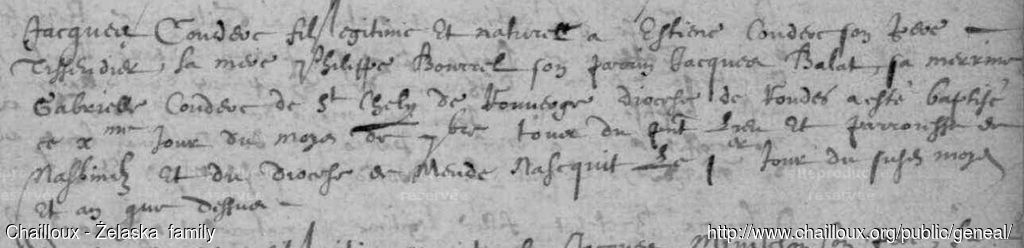 Jacques Couderc filz legitime et naturel a Estiene Couderc son pere
Tissendier, sa mere Philippe Bourrel son parrin Jacques Balat, sa merrine
Gabrielle Couderc de St Chely de diocese de Rondes a esté baptisé
ce xme jour du moys de 7bre du pnt lieu et parroisse de
Nasbinalz et du diocese de Mende Nasequit le jour du susd moys
et an que dessus
Chailloux - Żelaska family
http://www.chailloux.org/public/geneal/